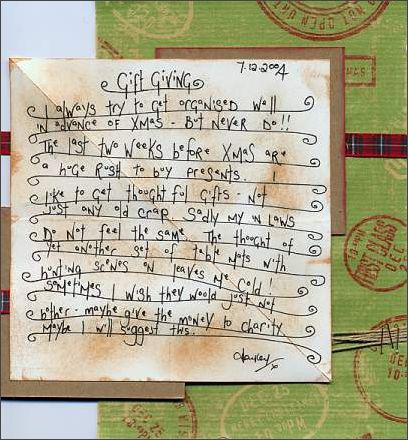 7-12-2004
Gift Giving
I always try to get organised well
in advance of Xmas - But never Do!!
The last two weeks before Xmas are
a huge Rush to buy presents. !
I like to get thoughtful gifts - Not
just any old crap. Sadly my in laws
Do not feel the same. The thought of
yet another set of table mats with
hunting scenes on leaves me cold!
Sometimes I wish they would just not
bother - maybe give the money to charity
Maybe I will suggest this.
NOT OPEN UNT
FIRST CLASS
DEC